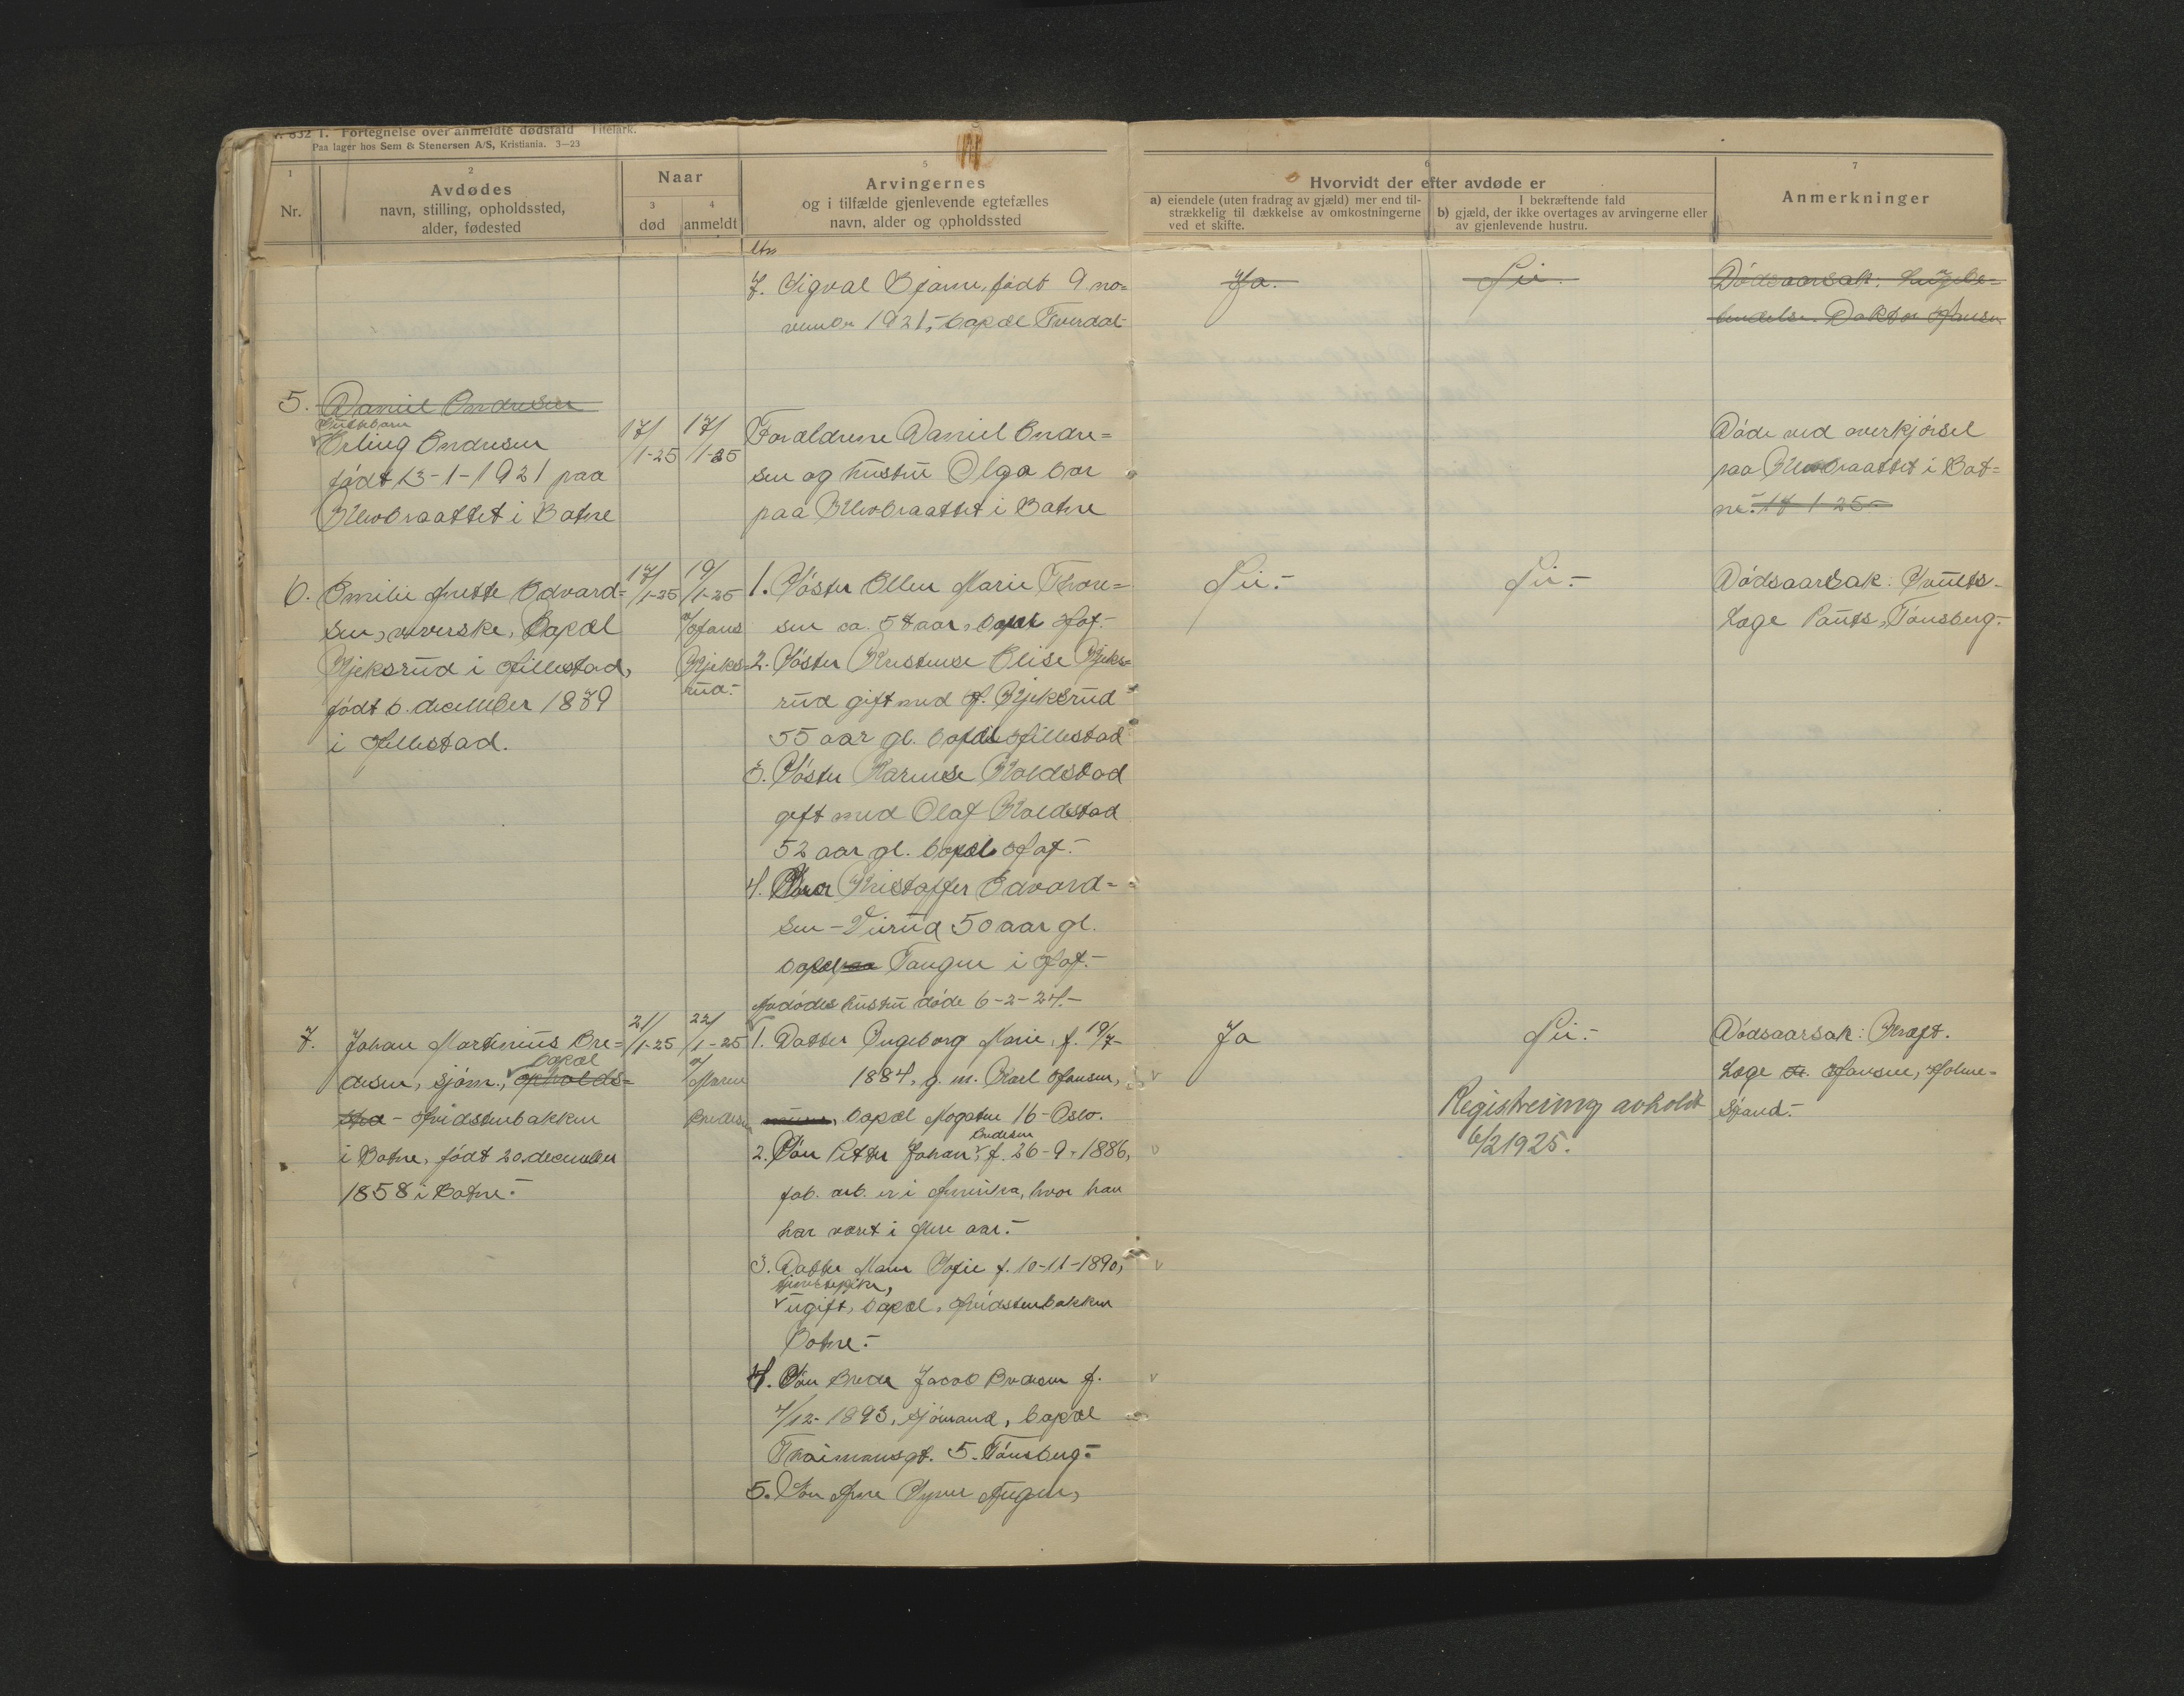 Nr. 832 1. Fortegnelse over anmeldte dødsfald Titelark.
Paa lager hos Sem & Stenersen A/S, Kristiania. 3—23
1
Nr.
2
Avdødes
navn, stilling, opholdssted,
alder, fødested
Naar
3
død
4
anmeldt
5
Arvingernes
og i tilfælde gjenlevende egtefælles
navn, alder og opholdssted
6
Hvorvidt der efter avdøde er
a) eiendele (uten fradrag av gjæld) mer end til-
strækkelig til dækkelse av omkostningerne
ved et skifte.
I bekræftende fald
b) gjæld, der ikke overtages av arvingerne eller
av gjenlevende hustru.
7
Anmerkninger
7. Sigval Bjarne, født 9 no=
vember 1921, bopæl Tverdal
Ja.
Nei.
Dødsaarsak: Lungebe=
tendelse. Doktor Hansen
5.
Daniel Endresen
Pikebarn
Erling Endresen
født 13-1-1921 paa
Klevbraattet i Botne
17/
1-25
17/
1-25
Forældrene Daniel Endre=
sen og hustru Olga bor
paa Klevbraattet i Botne
Døde ved overkjørsel
paa Klevbraattet i Bot=
ne. 17-1-25
6.
Emilie Anette Edvard=
sen, væverske, bopæl
Kjeksrud i Hillestad,
født 6. december 1879
i Hillestad.
17/
1-25
19/
1-25
av
Hans
Kjeks=
rud.-
1. Søster Ellen Marie Thore=
sen ca. 58 aar, bopæl Hof.-
2. Søster Kristense Elise Kjeks=
rud gift med H. Kjeksrud
55 aar gl. bopæl Hillestad
3. Søster Karense Koldstad
gift med Olaf Koldstad
52 aar gl. bopæl Hof.-
4. Bror Kristoffer Edvard=
sen - 50 aar gl.
bopæl paa Tangen i Hof.-
Nei.-
Nei.-
Dødsaarsak:
Læge Tønsberg.-
Avdødes hustru døde 6-2-24.-
7.
Johan Martinius Bre=
desen, sjøm., opholds=
bopæl
sted - Hvidstenbakken
i Botne, født 20. december
1858 i Botne.-
21/
1-25
22/
1-25
av
Maren
Bredesen
1. Datter Ingeborg Marie, f. 19/7-
1884, g. m. Karl Hansen,
bopæl 16 - Oslo.
2. Søn Petter Johan Bredesen, f. 26-9-1886,
fab. arb. er i Amerika, hvor han
har været i flere aar.-
3. Datter Maren Sofie f. 10-11-1890,
tjenestepike,
ugift, bopæl, Hvidstenbakken
Botne.-
4. Søn Brede Jacob Bredesen f.
4/12-1893, sjømand, bopæl
Træimansgt. 5. Tønsberg.-
5. Søn Arne
Ja
Nei.-
Registrering avholdt
6/2 1925.
Dødsaarsak: Kræft.
Læge Hansen, Holme-
strand.-